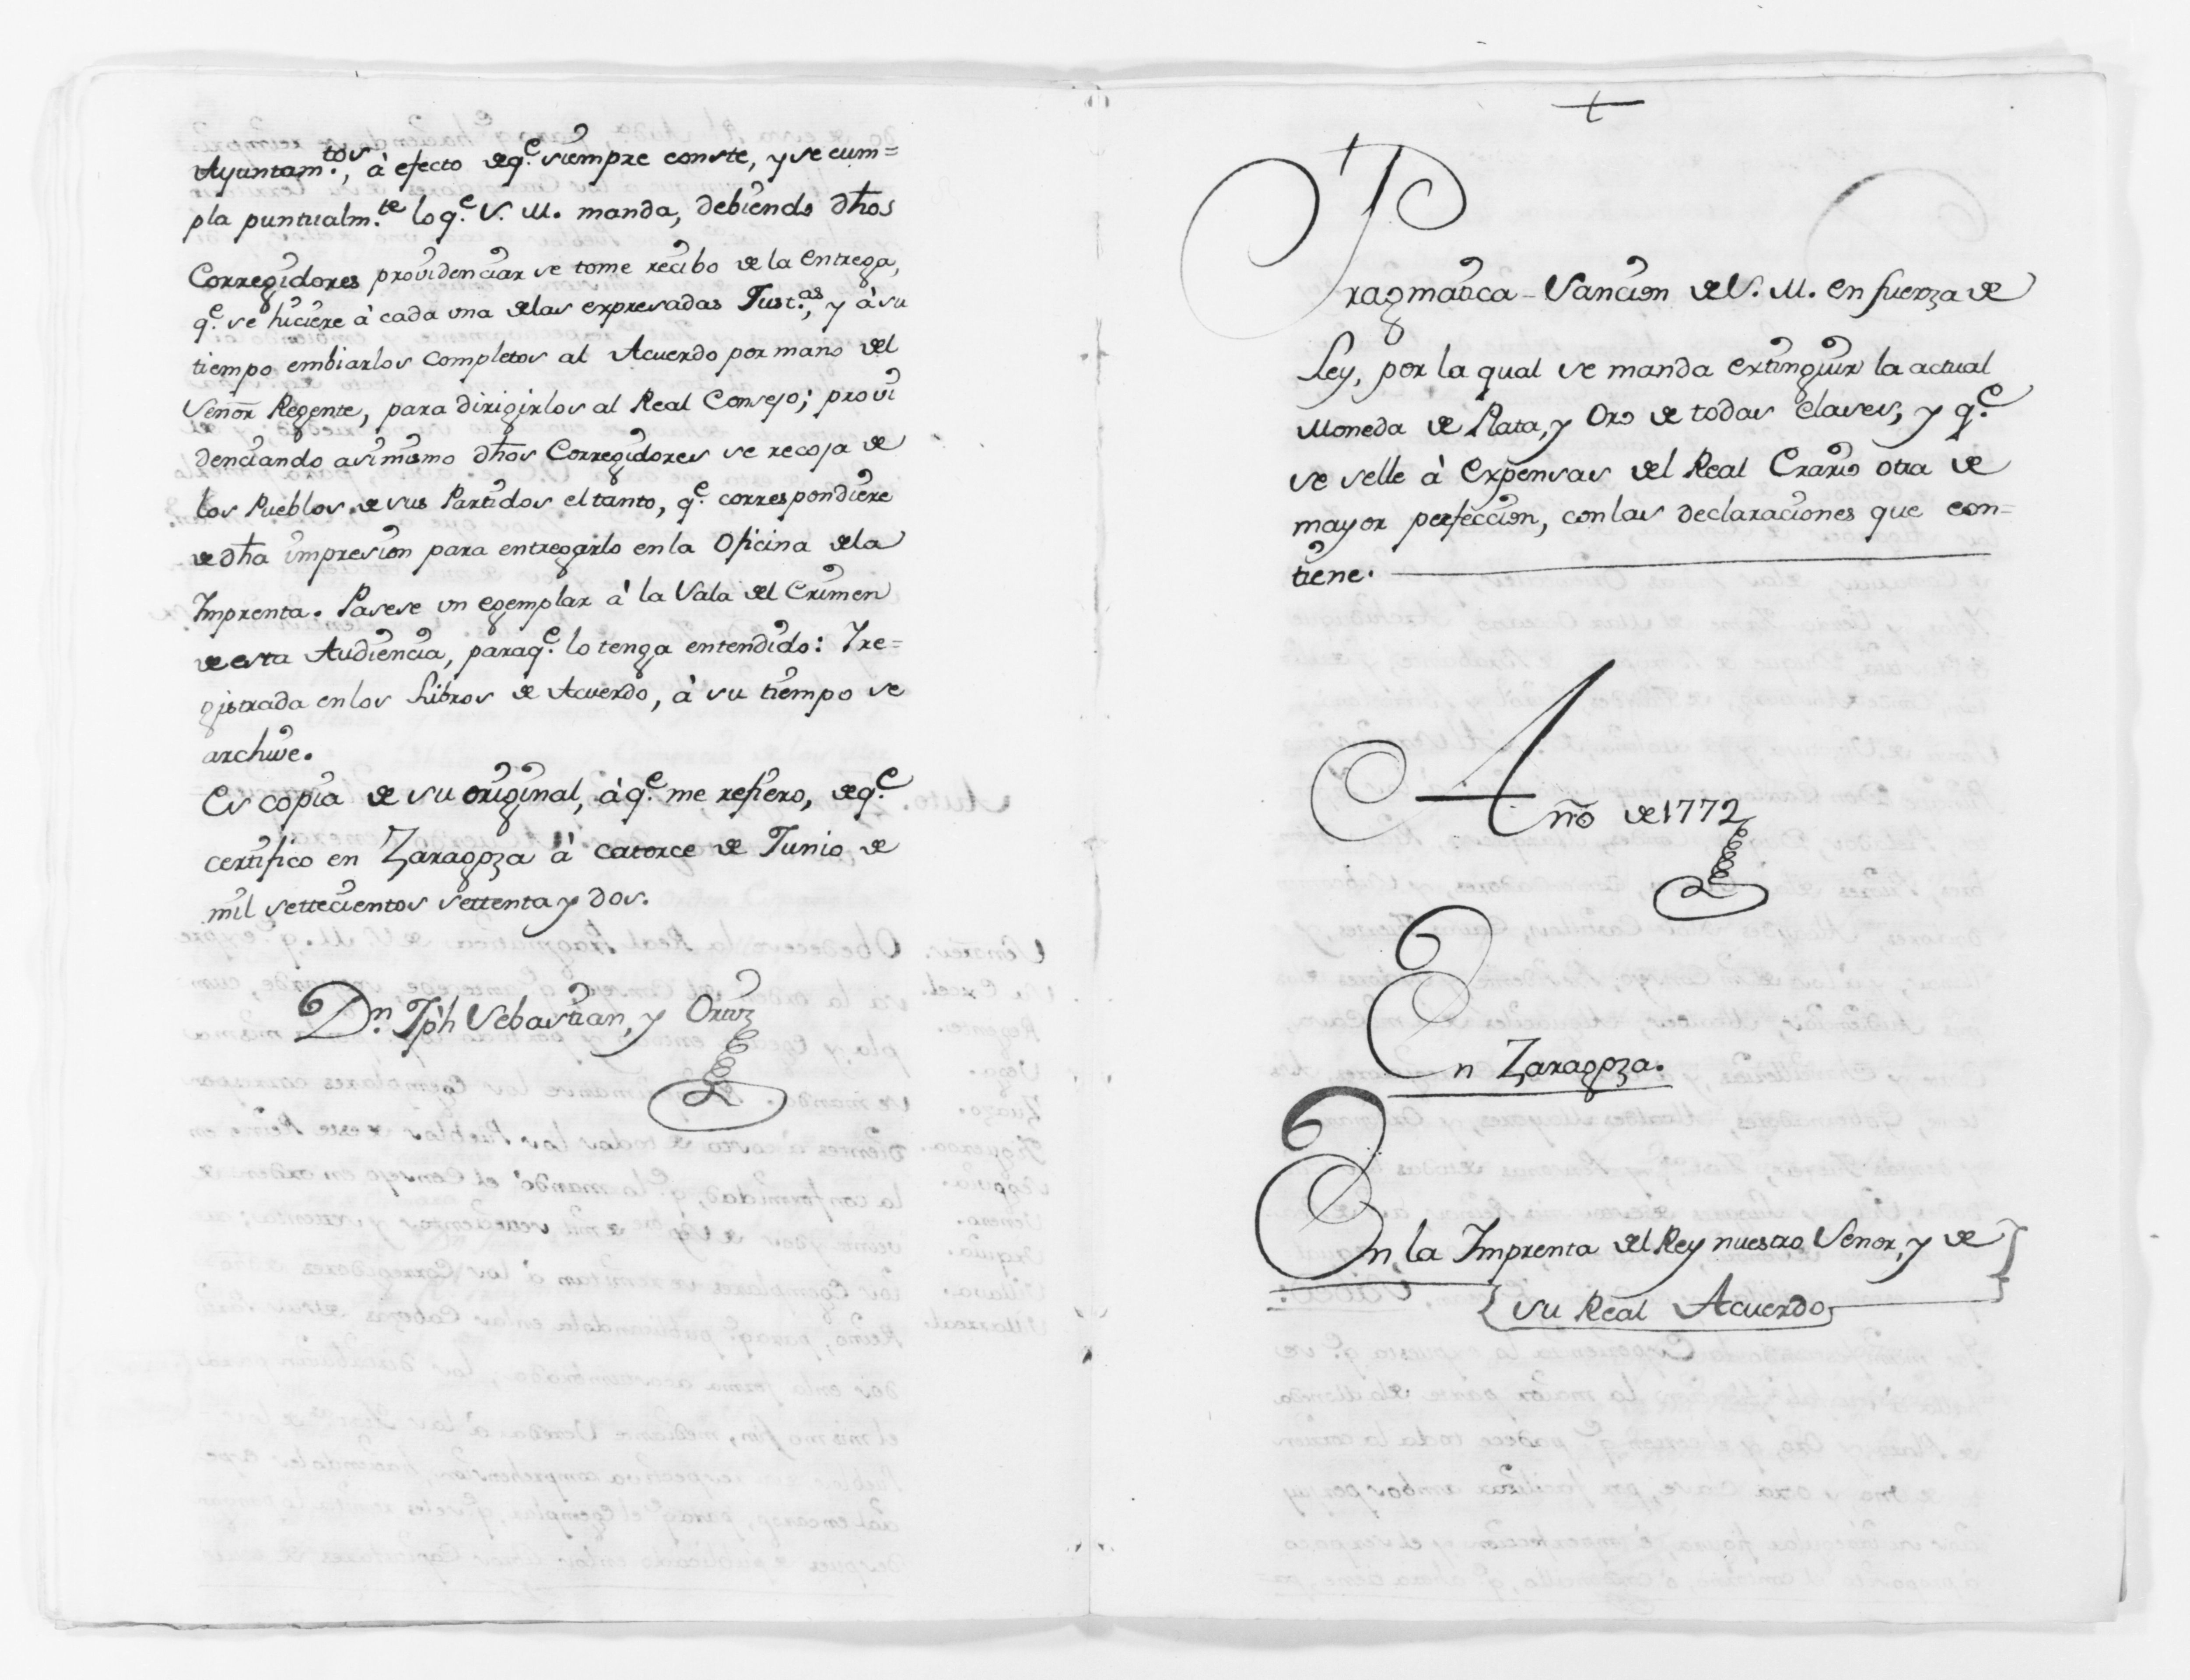 Ayuntam.tos, à efecto de q.e siempre conste, y se cum=
pla puntualm.te lo q.e S. M. manda, debiendo dhos
Corregidores providenciar se tome recibo de la entrega,
q.e se hiciere à cada una de las expresadas Just.as, y à su
tiempo embiarlos completos al Acuerdo por mano del
Señor Regente, para dirigirlos al Real Consejo; provi
denciando asimismo dhos Corregidores se recoja de
los Pueblos de sus Partidos el tanto, q.e correspondiere
de dha impresion para entregarlo en la Oficina dela
Imprenta. Pasese un egemplar à la Sala del Crimen
de esta Audiencia, paraq.e lo tenga entendido: Y re=
gistrada en los Libros de Acuerdo, à su tiempo se
archive.
Es copia de su original, à q.e me refiero, de q.e
certifico en Zaragoza à catorce de Junio de
mil settecientos settenta y dos.
Dn. Jph Sebastian, y Ortiz
+
Pragmatica-Sancion de S. M. en fuerza de
Ley, por la qual se manda extinguir la actual
Moneda de Plata, y Oro de todas clases, y q.e
se selle à Expensas del Real Erario otra de
mayor perfeccion, con las declaraciones que con=
tiene.
Año de 1772
En Zaragoza.
En la Imprenta del Rey nuestro Señor, y de
su Real Acuerdo